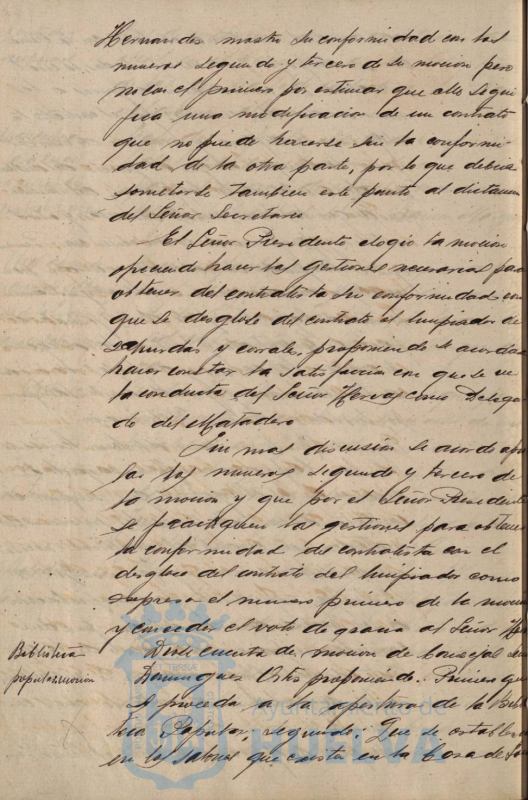 Hernandez mostro su conformidad con los
numeros segundo y tercero de su mocion pero
no con el primero por estimar que ello signi
fica una modificacion de un contrato
que no puede hacerse sin la conformi
dad de la otra parte, por lo que debera
someterse tambien este punto al dictamen
del Señor Secretario
El Señor Presidente elogio la mocion
ofreciendo hacer las gestiones necesarias para
obtener del contratista su conformidad con
que se desglose del contrato el limpiador de
y corrales, proponiendo se acordara
hacer constar la satisfaccion con que se ve
la conducta del Señor Hervas como Delega
do del Matadero
Sin mas discusion se acordo apro
bar los numeros segundo y tercero de
la mocion y que por el Señor Presidente
se practiquen las gestiones para obtener
la conformidad del contratista con el
desglose del contrato del limpiador como
expresa el numero primero de la mocion
y conceder el voto de gracia al Señor
Biblioteca
popular: mocion
Diose cuenta de mocion de Concejal
Dominguez Ortiz proponiendo: Primero que
se proceda a la apertura de la Biblio
teca Popular, segundo: Que se establezca
en los salones que existen en la Casa de
Ayuntamiento de
HUELVA